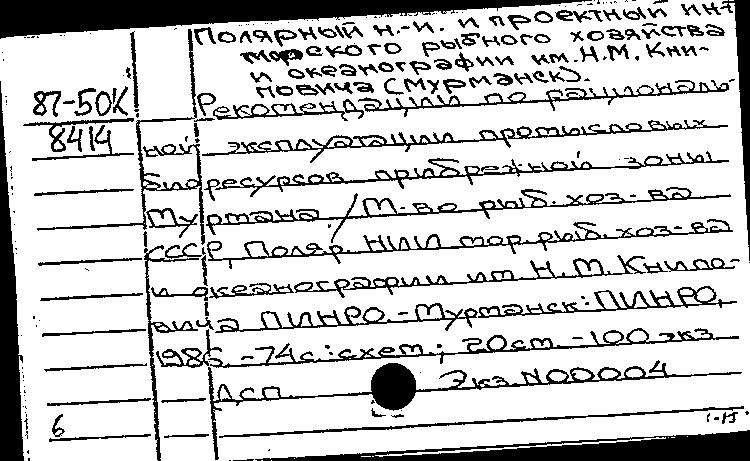 Полярный н.-и. и проектный ин-т
морского рыбного хозяйства
и океанографии им. Н.М. Кни-
повича (Мурманск).
87-50К
8414
Рекомендации по рациональ-
ной эксплуатации промысловых
биоресурсов прибрежной зоны
Мурмана. / М-во рыб. хоз-ва
СССР, Поляр. НИИ мор. рыб. хоз-ва
и океанографии им. Н.М. Книпо-
вича ПИНРО. - Мурманск: ПИНРО,
1986. - 74с.: схем.; 20см. - 100 экз.
Дсп. Экз. N00004
6